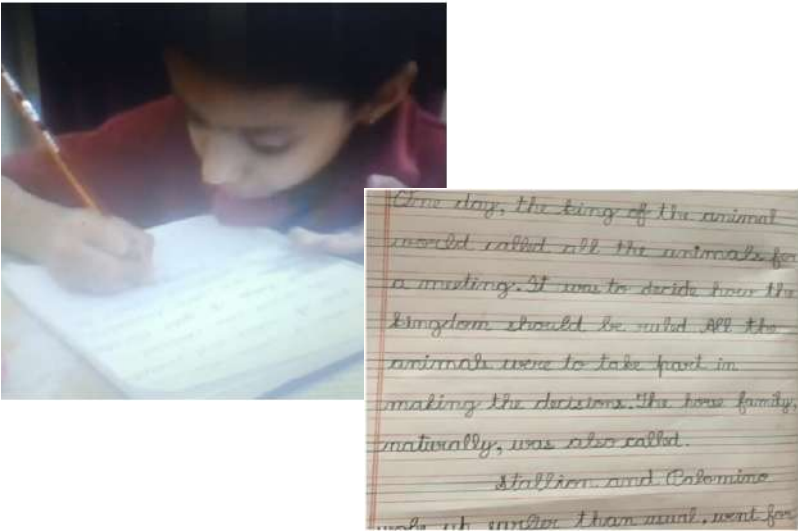 One day, the king of the animal
world called all the animals for
a meeting. It was to decide how the
kingdom should be ruled All the
animals were to take part in
making the decisions. The horse family,
naturally, was also called.
Stallion and Palomino
woke up earlier than usual, went for